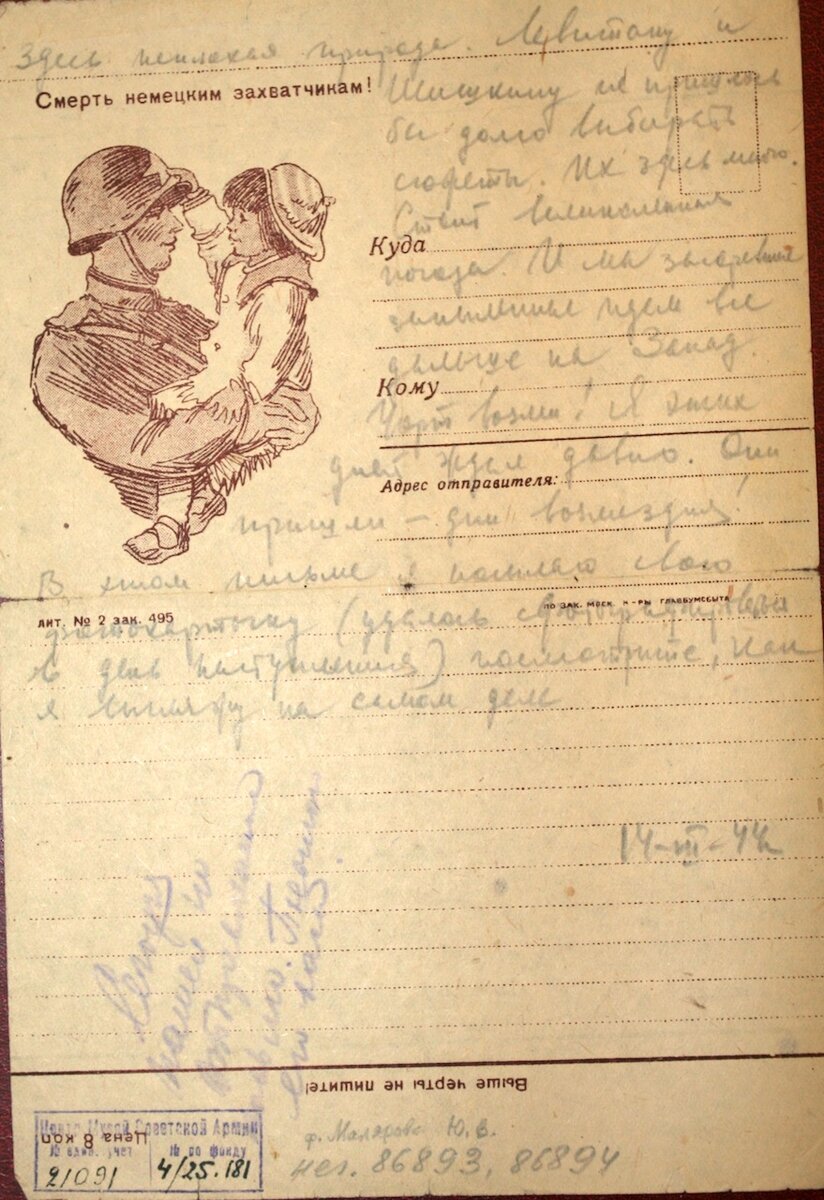 Здесь неплохая природа. Левитану и
Смерть немецким захватчикам!
Шишкину не пришлось
бы долго выбирать
сюжеты. Их здесь много.
Стоит великолепная
Куда
погода. И мы загоревшие
запыленные идем все
дальше на Запад.
Кому
Черт возьми! Я этих
дней ждал давно. Они
Адрес отправителя:
пришли — дни возмездия!
В этом письме я посылаю свою
ЛИТ. № 2 зак. 495
ПО ЗАК. МОСК. К-РЫ ГЛАВБУМСБЫТА
фотокарточку (удалось сфотографироваться
в день наступления) посмотрите, как
я выгляжу на самом деле
14-III-44
Выше черты не пишите!
Цена 8 коп
Центр. Музей Советской Армии
№ по фонду
21091
4/25.181
ф. Малярова Ю. В.
нег. 86893, 86894